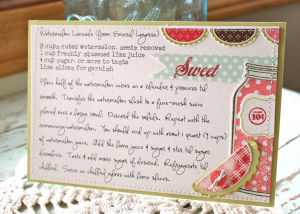 Watermelon Limeade (from Emeril Lagasse)
8 cups cubed watermelon, seeds removed
1 cup freshly squeezed lime juice
1 cup sugar, or more to taste
lime slices for garnish
Sweet
Place half of the watermelon cubes in a blender & process til
smooth. Transfer the watermelon mixture to a fine-mesh sieve
placed over a large bowl. Discard the solids. Repeat with the
remaining watermelon. You should end up with about 1 quart (4 cups)
of watermelon juice. Add the lime juice & sugar & stir til sugar
dissolves. Taste & add more sugar if desired. Refrigerate til
chilled. Serve in chilled glasses with lime slices.
10¢